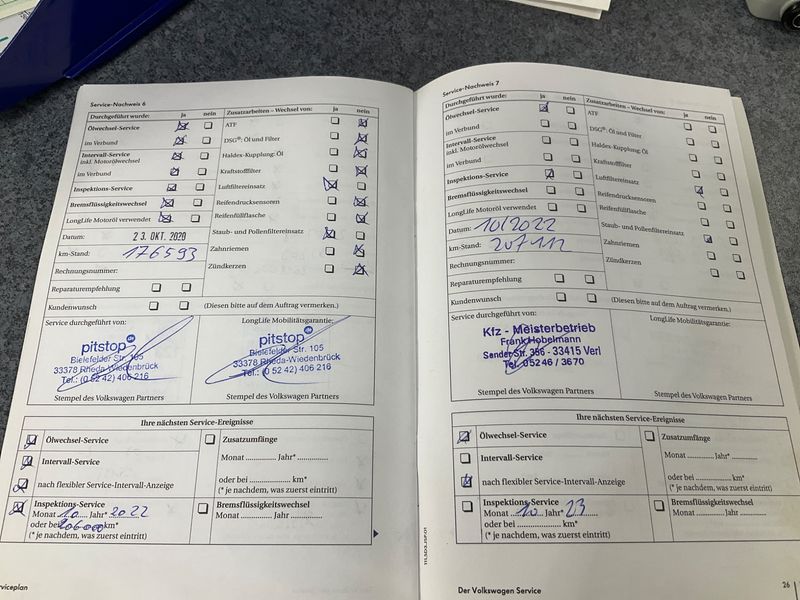 Service-Nachweis 6
Durchgeführt wurde: ja nein
Ölwechsel-Service
im Verbund
Intervall-Service
inkl. Motorölwechsel
im Verbund
Inspektions-Service
Bremsflüssigkeitswechsel
LongLife Motoröl verwendet
Datum: 23. OKT. 2020
km-Stand: 176593
Rechnungsnummer:
Reparaturempfehlung
Kundenwunsch
Zusatzarbeiten – Wechsel von: ja nein
ATF
DSG®: Öl und Filter
Haldex-Kupplung: Öl
Kraftstofffilter
Luftfiltereinsatz
Reifendrucksensoren
Reifenfüllflasche
Staub- und Pollenfiltereinsatz
Zahnriemen
Zündkerzen
(Diesen bitte auf dem Auftrag vermerken.)
Service durchgeführt von:
pitstop
Bielefelder Str. 105
33378 Rheda-Wiedenbrück
Tel.: (0 52 42) 406 216
Stempel des Volkswagen Partners
LongLife Mobilitätsgarantie:
pitstop
Bielefelder Str. 105
33378 Rheda-Wiedenbrück
Tel.: (0 52 42) 406 216
Stempel des Volkswagen Partners
Ihre nächsten Service-Ereignisse
Ölwechsel-Service
Intervall-Service
nach flexibler Service-Intervall-Anzeige
Inspektions-Service
Monat 10 Jahr* 2022
oder bei km*
(* je nachdem, was zuerst eintritt)
Zusatzumfänge
Monat .............. Jahr* ..............
oder bei .............. km*
(* je nachdem, was zuerst eintritt)
Bremsflüssigkeitswechsel
Monat .............. Jahr ..............
rviceplan
Service-Nachweis 7
Durchgeführt wurde: ja nein
Ölwechsel-Service
im Verbund
Intervall-Service
inkl. Motorölwechsel
im Verbund
Inspektions-Service
Bremsflüssigkeitswechsel
LongLife Motoröl verwendet
Datum: 10/2022
km-Stand: 207112
Rechnungsnummer:
Reparaturempfehlung
Kundenwunsch
Zusatzarbeiten – Wechsel von: ja nein
ATF
DSG®: Öl und Filter
Haldex-Kupplung: Öl
Kraftstofffilter
Luftfiltereinsatz
Reifendrucksensoren
Reifenfüllflasche
Staub- und Pollenfiltereinsatz
Zahnriemen
Zündkerzen
(Diesen bitte auf dem Auftrag vermerken.)
Service durchgeführt von:
Kfz - Meisterbetrieb
Frank Hobelmann
Sender Str. 386 - 33415 Verl
Tel. 05246 / 3670
Stempel des Volkswagen Partners
LongLife Mobilitätsgarantie:
Stempel des Volkswagen Partners
Ihre nächsten Service-Ereignisse
Ölwechsel-Service
Intervall-Service
nach flexibler Service-Intervall-Anzeige
Inspektions-Service
Monat 10 Jahr* 23
oder bei .............. km*
(* je nachdem, was zuerst eintritt)
Zusatzumfänge
Monat .............. Jahr* ..............
oder bei .............. km*
(* je nachdem, was zuerst eintritt)
Bremsflüssigkeitswechsel
Monat .............. Jahr ..............
Der Volkswagen Service
26